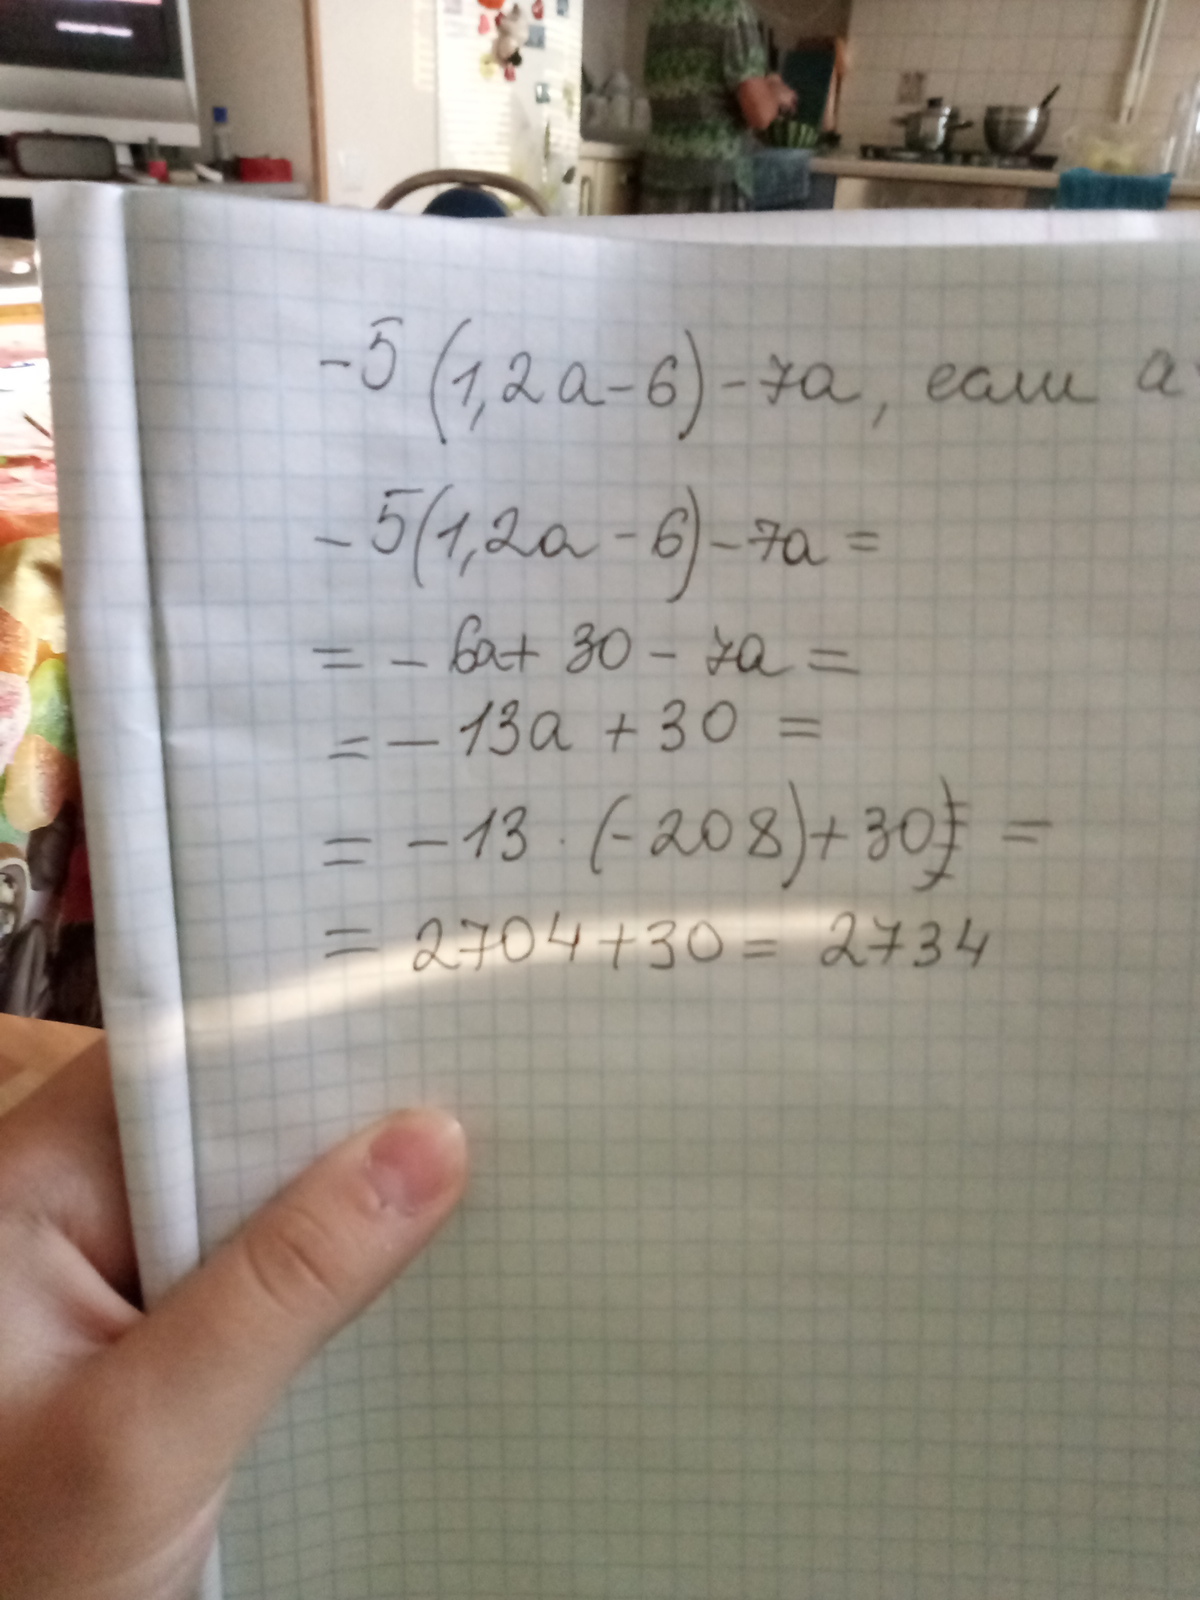 -5(1,2a-6)-7a, если a
-5(1,2a-6)-7a=
=-6a+30-7a=
=-13a+30=
=-13·(-208)+30=
=2704+30=2734